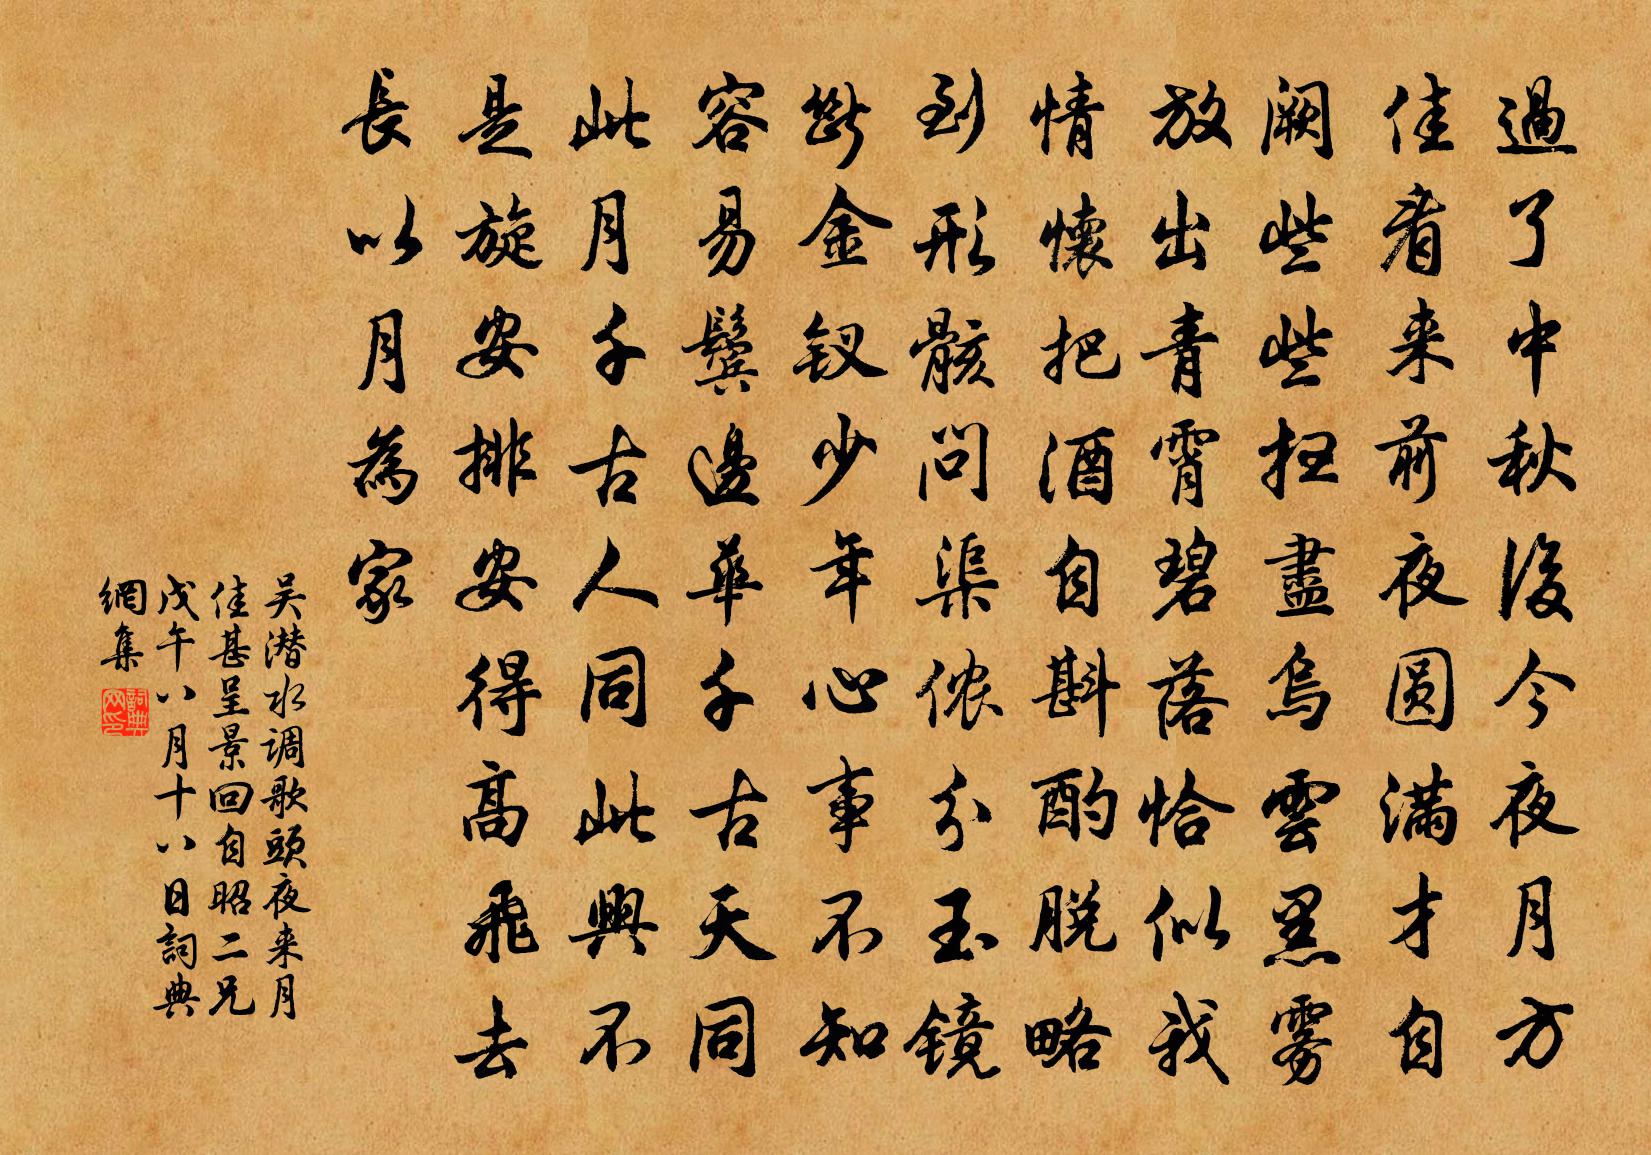 過了中秋後今夜月方
佳看来前夜圆满才自
阙些些扫盡烏雲黑雾
放出青霄碧落恰似我
情懷把酒自斟酌脱略
到形骸問渠侬分玉镜
斷金钗少年心事不知
容易鬓邊華千古天同
此月千古人同此興不
是旋安排安得高飛去
長以月為家
吴潜水调歌頭夜来月
佳甚呈景回自昭二兄
戊午八月十八日詞典
網集
詞典
网印